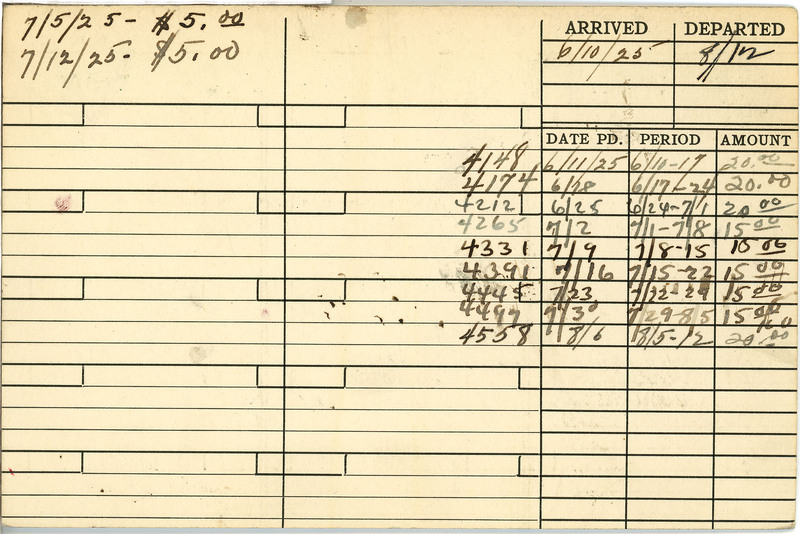 7/5/25 - $5.00
7/12/25 - $5.00
ARRIVED DEPARTED
6/10/25 8/12
DATE PD. PERIOD AMOUNT
4148 6/11/25 6/10-17 20.00
4174 6/18 6/17-24 20.00
4212 6/25 6/24-7/1 20.00
4265 7/2 7/1-7/8 15.00
4331 7/9 7/8-15 15.00
4391 7/16 7/15-22 15.00
4445 7/23 7/22-29 15.00
4497 7/30 7/29-8/5 15.00
4558 8/6 8/5-12 20.00